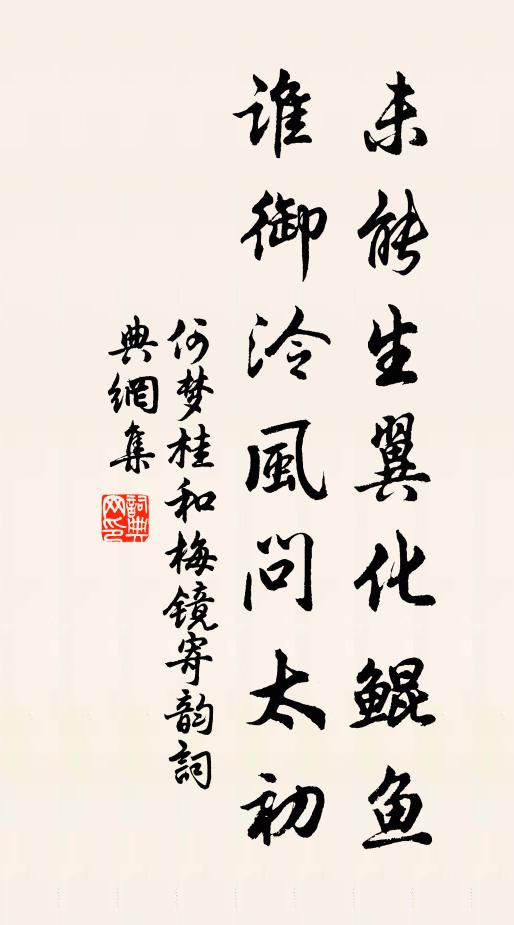 未能生翼化鲲鱼
谁御泠風问太初
何梦桂和梅镜寄韵詞
典網集
詞典
网印